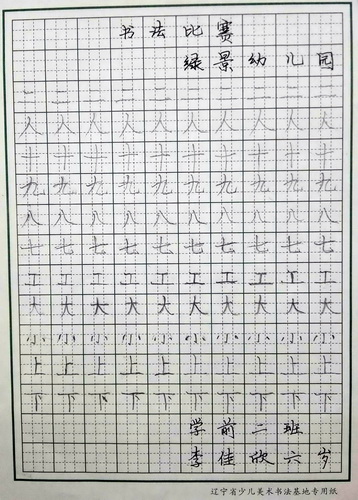 书法比赛
绿景幼儿园
二二二二二二二二二二
人人人人人人人人人人
十十十十十十十十十十
九九九九九九九九九九
八八八八八八八八八八
七七七七七七七七七七
工工工工工工工工工工
大大大大大大大大大大
小小小小小小小小小小
上上上上上上上上上上
下下下下下下下下下下
学前二班
李佳欣六岁
辽宁省少儿美术书法基地专用纸